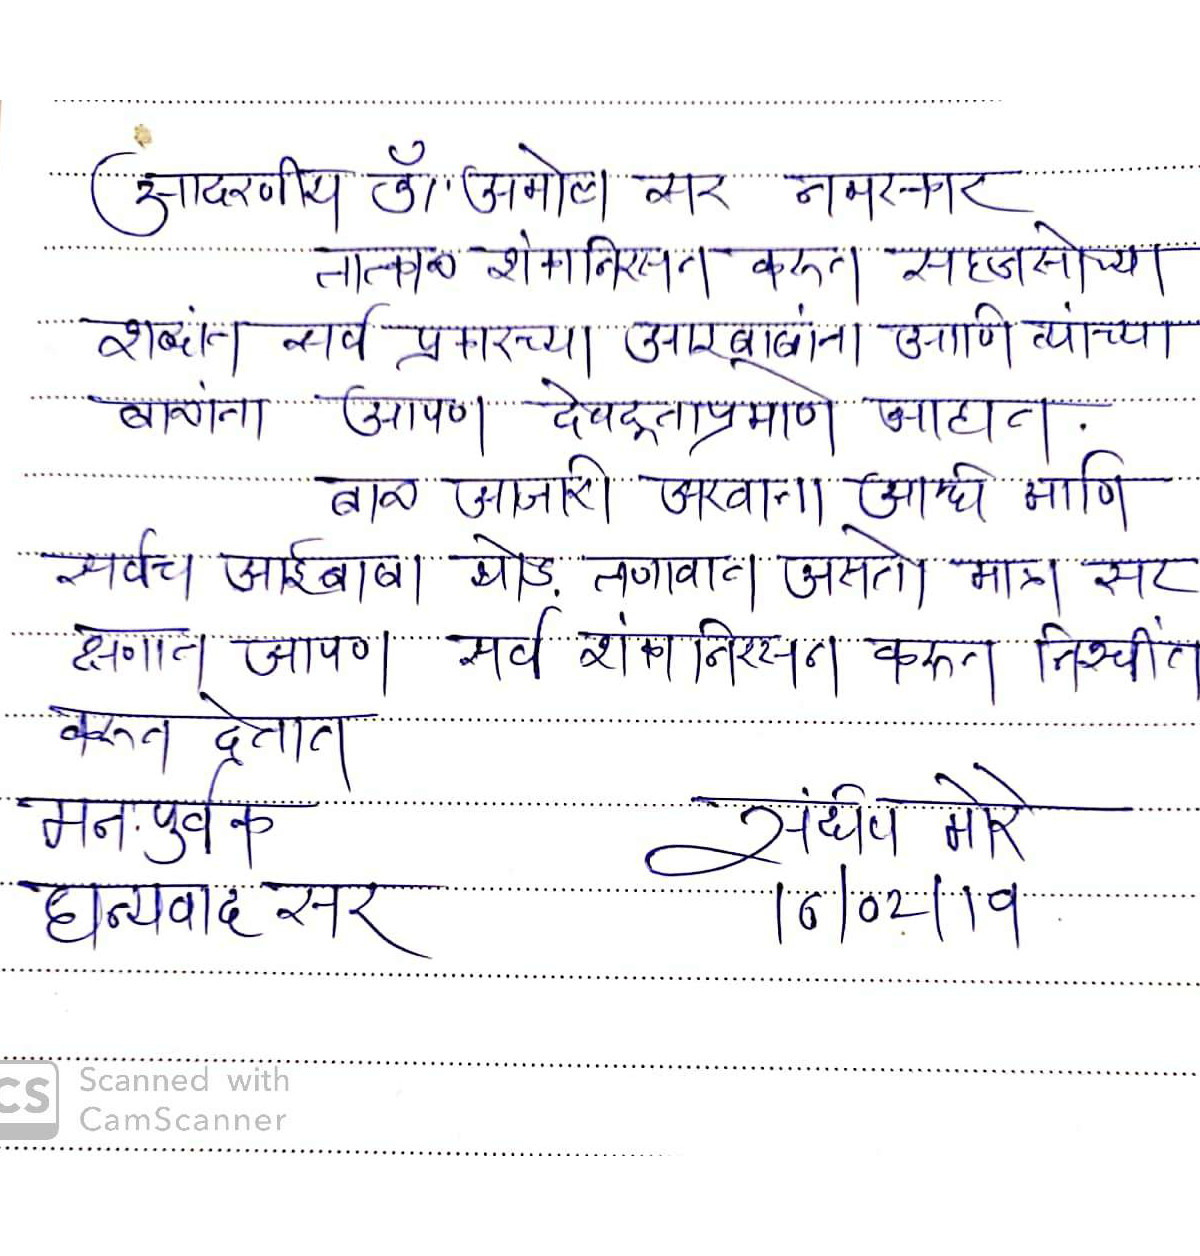 आदरणीय डॉ. अमोल सर नमस्कार
तात्काळ शंकानिरसन करून सहजसोप्या
शब्दांत सर्व प्रकारच्या आईबाबांना आणि त्यांच्या
बाळांना आपण देवदूताप्रमाणे आहात.
बाळ आजारी असताना आम्ही आणि
सर्वच आईबाबा थोडं तणावात असतो मात्र सर
क्षणात आपण सर्व शंका निरसन करून निश्चींत
करून देतात
मनःपुर्वक संदीप मोरे
धन्यवाद सर 16/02/19
CS Scanned with
CamScanner